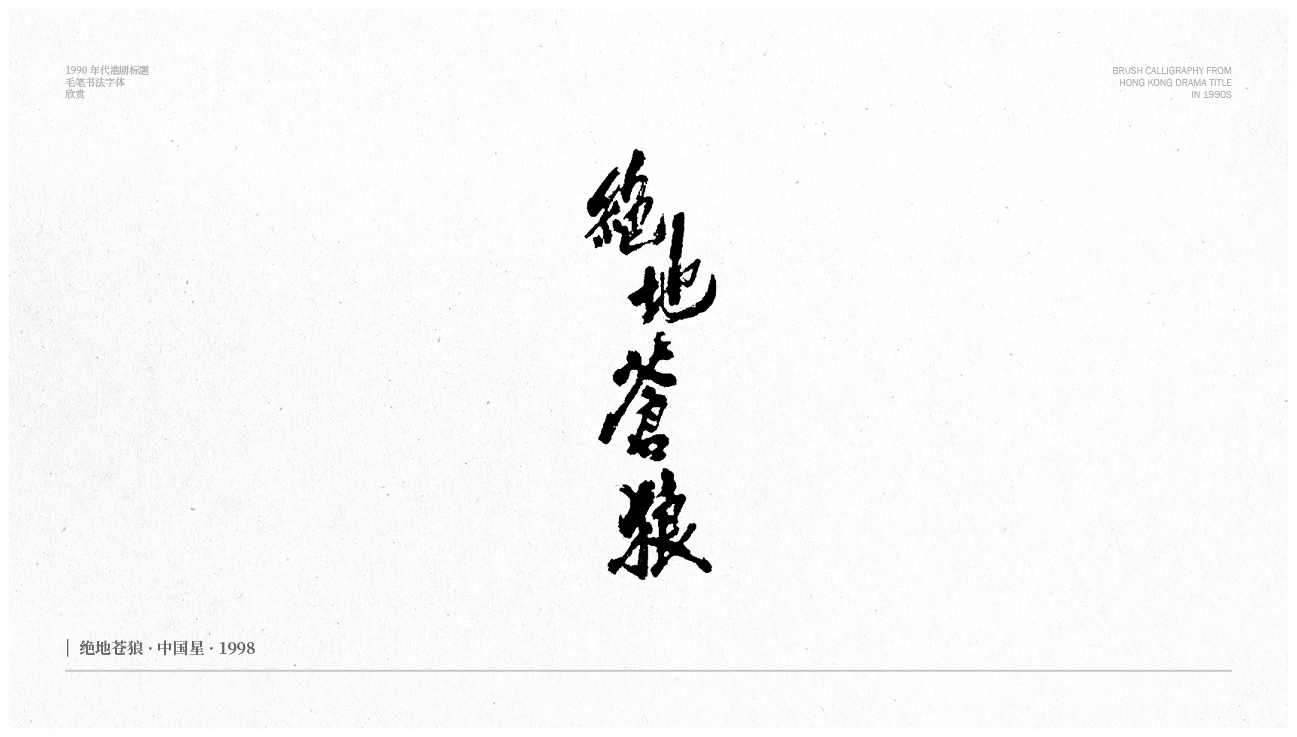 1990 年代港剧标题
毛笔书法字体
欣赏
BRUSH CALLIGRAPHY FROM
HONG KONG DRAMA TITLE
IN 1990S
絕地蒼狼
绝地苍狼 · 中国星 · 1998